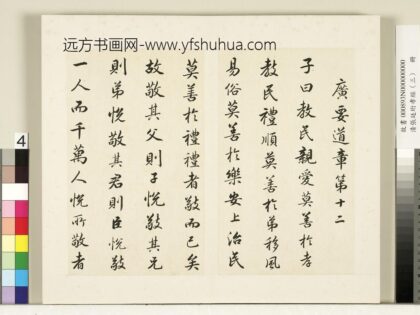 远方书画网-www.yfshuhua.com
廣要道章第十二
子曰教民親愛莫善於孝
教民禮順莫善於弟移風
易俗莫善於樂安上治民
莫善於禮禮者敬而已矣
故敬其父則子悅敬其兄
則弟悅敬其君則臣悅敬
一人而千萬人悅所敬者
4